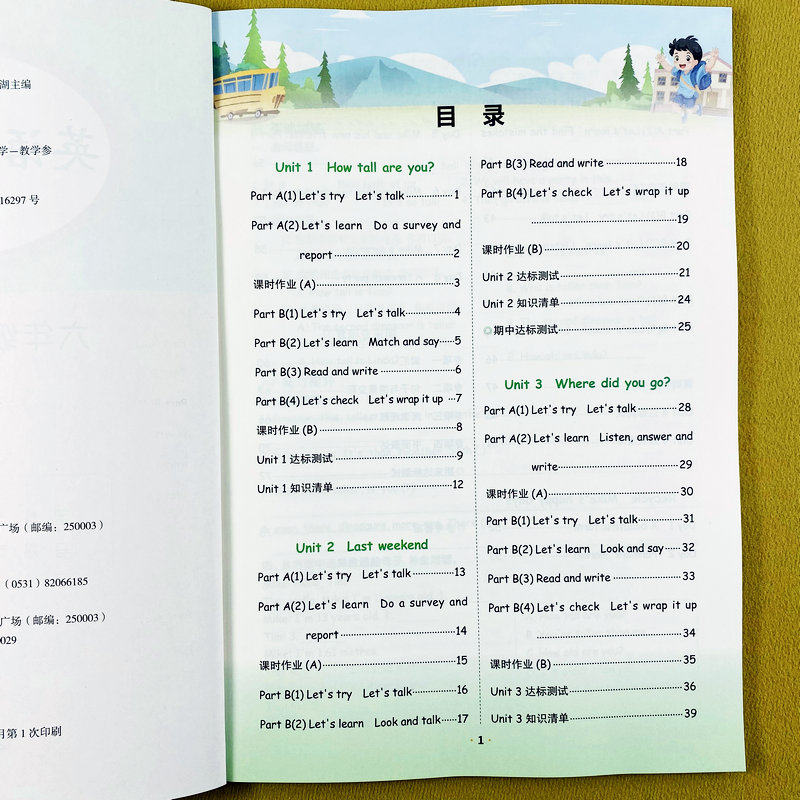 湖主编
学—教学参
16297 号
广场（邮编：250003）
（0531）82066185
广场（邮编：250003）
029
月第 1 次印刷
目 录
Unit 1 How tall are you?
Part A(1) Let's try Let's talk 1
Part A(2) Let's learn Do a survey and
report 2
课时作业 (A) 3
Part B(1) Let's try Let's talk 4
Part B(2) Let's learn Match and say 5
Part B(3) Read and write 6
Part B(4) Let's check Let's wrap it up 7
课时作业 (B) 8
Unit 1 达标测试 9
Unit 1 知识清单 12
Unit 2 Last weekend
Part A(1) Let's try Let's talk 13
Part A(2) Let's learn Do a survey and
report 14
课时作业 (A) 15
Part B(1) Let's try Let's talk 16
Part B(2) Let's learn Look and talk 17
Part B(3) Read and write 18
Part B(4) Let's check Let's wrap it up
19
课时作业 (B) 20
Unit 2 达标测试 21
Unit 2 知识清单 24
期中达标测试 25
Unit 3 Where did you go?
Part A(1) Let's try Let's talk 28
Part A(2) Let's learn Listen, answer and
write 29
课时作业 (A) 30
Part B(1) Let's try Let's talk 31
Part B(2) Let's learn Look and say 32
Part B(3) Read and write 33
Part B(4) Let's check Let's wrap it up
34
课时作业 (B) 35
Unit 3 达标测试 36
Unit 3 知识清单 39
· 1 ·